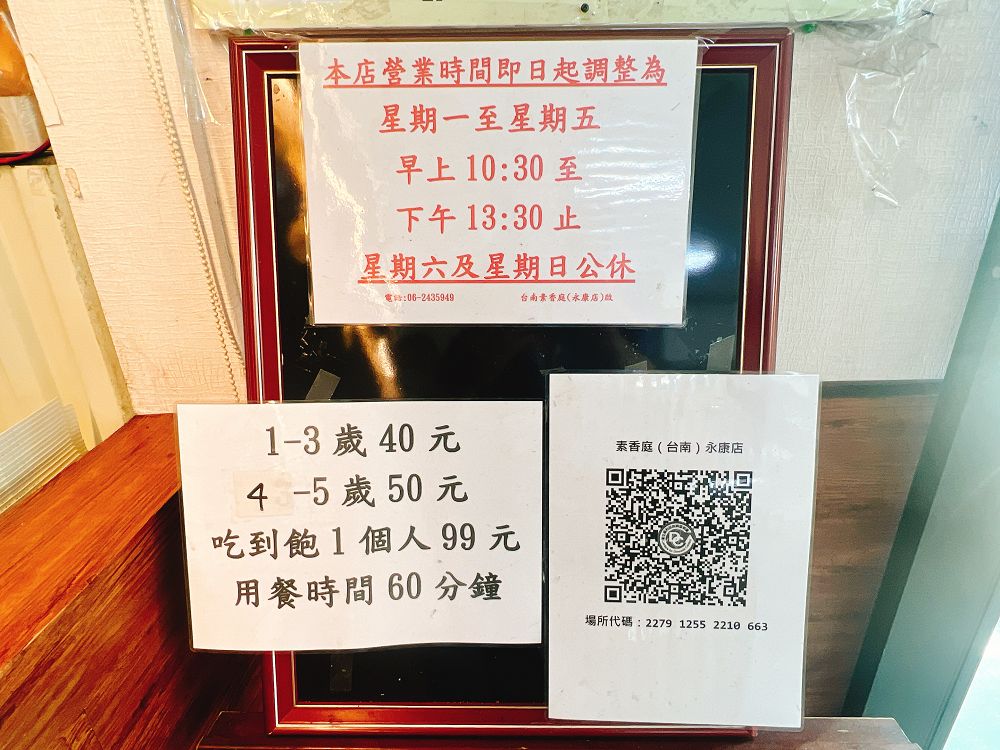 本店營業時間即日起調整為
星期一至星期五
早上 10:30 至
下午 13:30 止
星期六及星期日公休
電話:06-2435949 台南素香庭(永康店)啟
1-3 歲 40 元
4 -5 歲 50 元
吃到飽 1 個人 99 元
用餐時間 60 分鐘
素香庭（台南）永康店
場所代碼：2279 1255 2210 663